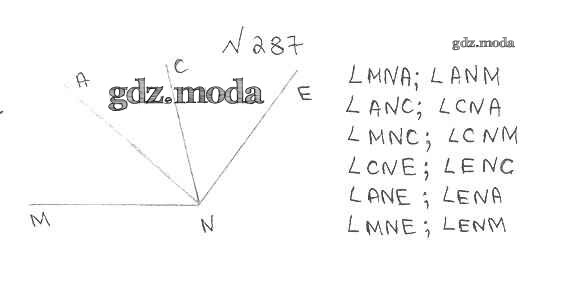 № 287
gdz.moda
A
C
E
gdz.moda
M
N
∠MNA; ∠ANM
∠ANC; ∠CNA
∠MNC; ∠CNM
∠CNE; ∠ENC
∠ANE; ∠ENA
∠MNE; ∠ENM